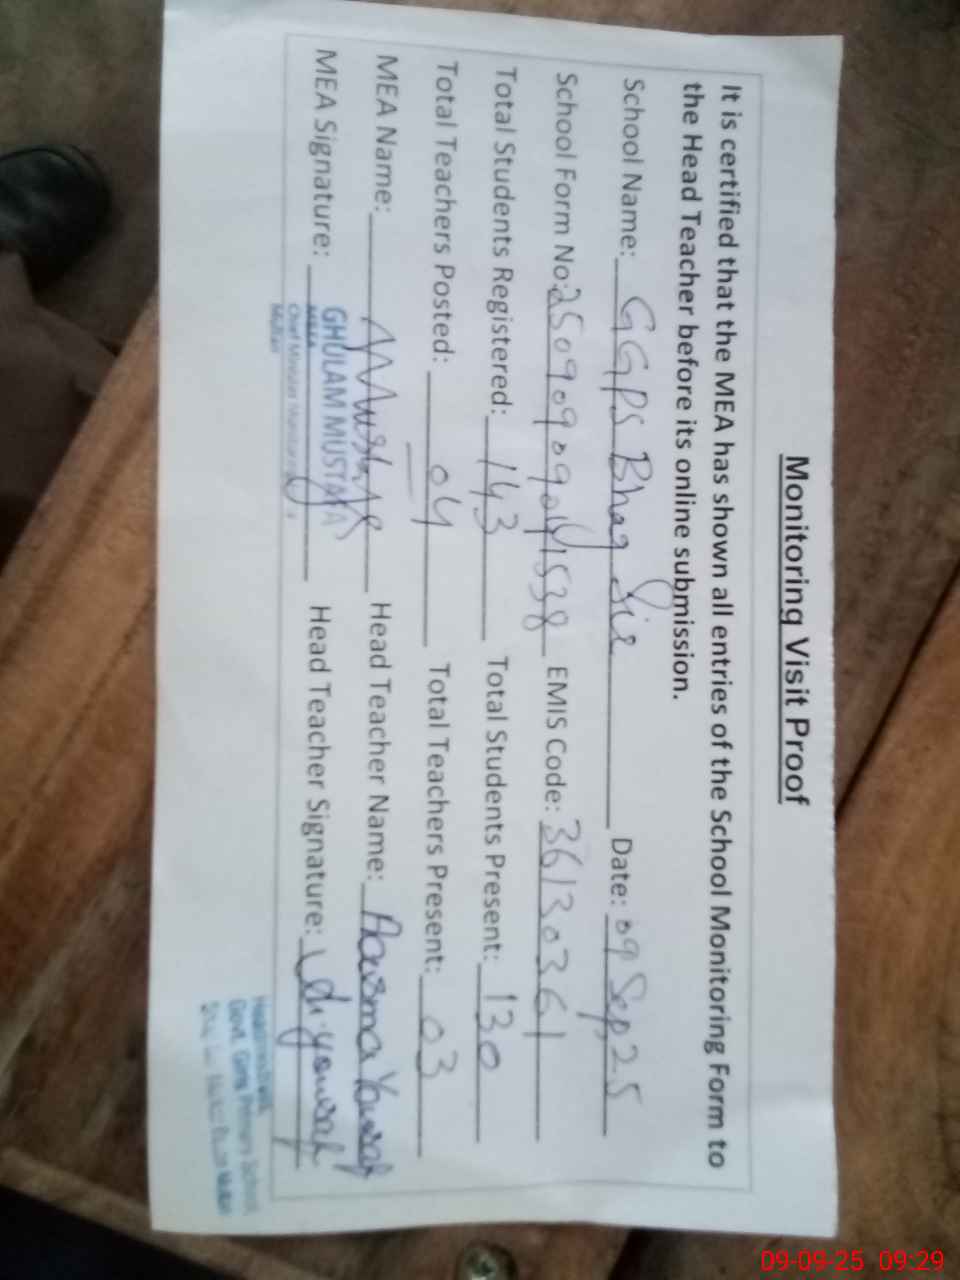 Monitoring Visit Proof
It is certified that the MEA has shown all entries of the School Monitoring Form to
the Head Teacher before its online submission.
School Name: GGPS Bhag Sir Date: 09 Sep, 25
School Form No: EMIS Code: 36130361
Total Students Registered: 143 Total Students Present: 130
Total Teachers Posted: 04 Total Teachers Present: 03
MEA Name: Mustafa Head Teacher Name: Yousaf
MEA Signature: Head Teacher Signature:
GHULAM MUSTAFA
MEA
Multan
Headmistress
Govt. Girls Primary School
09-09-25 09:29